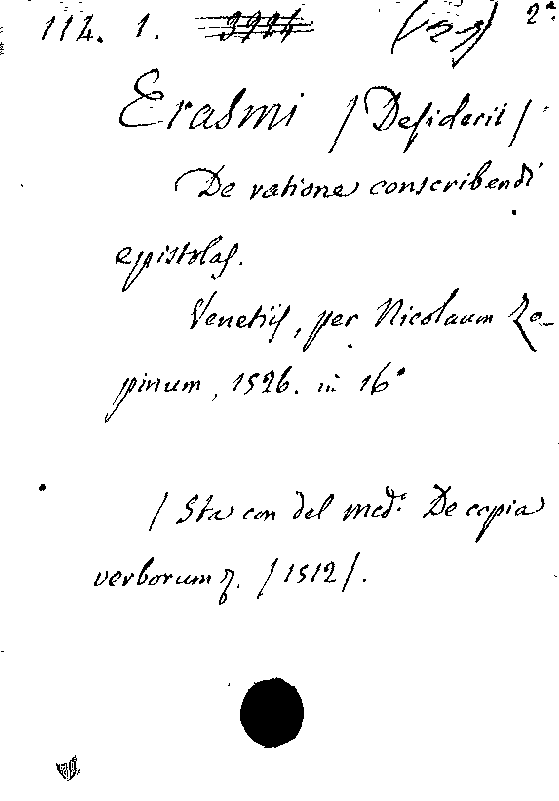 114. 1. 3924 2ª
Erasmi / Desiderii /
De ratione conscribendi
epistolas.
Venetiis, per Nicolaum Zo-
pinum, 1526. in 16°
/ Sta con del med.º De copia
verborum &. / 1512 /.